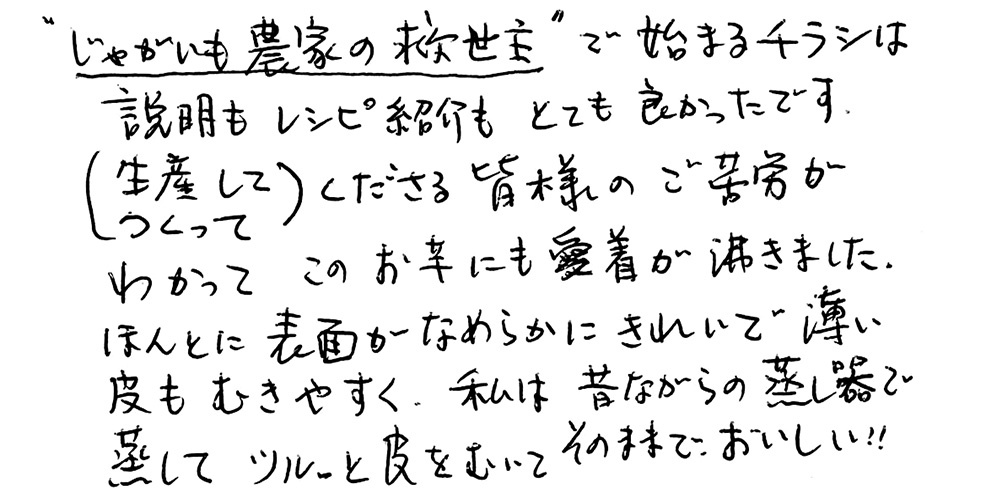 "じゃがいも農家の救世主"で始まるチラシは
説明もレシピ紹介もとても良かったです.
(生産して
つくって)くださる皆様のご苦労が
わかって このお芋にも愛着が沸きました.
ほんとに表面がなめらかにきれいで薄い
皮もむきやすく. 私は昔ながらの蒸し器で
蒸してツルーっと皮をむいてそのままで…おいしい!!